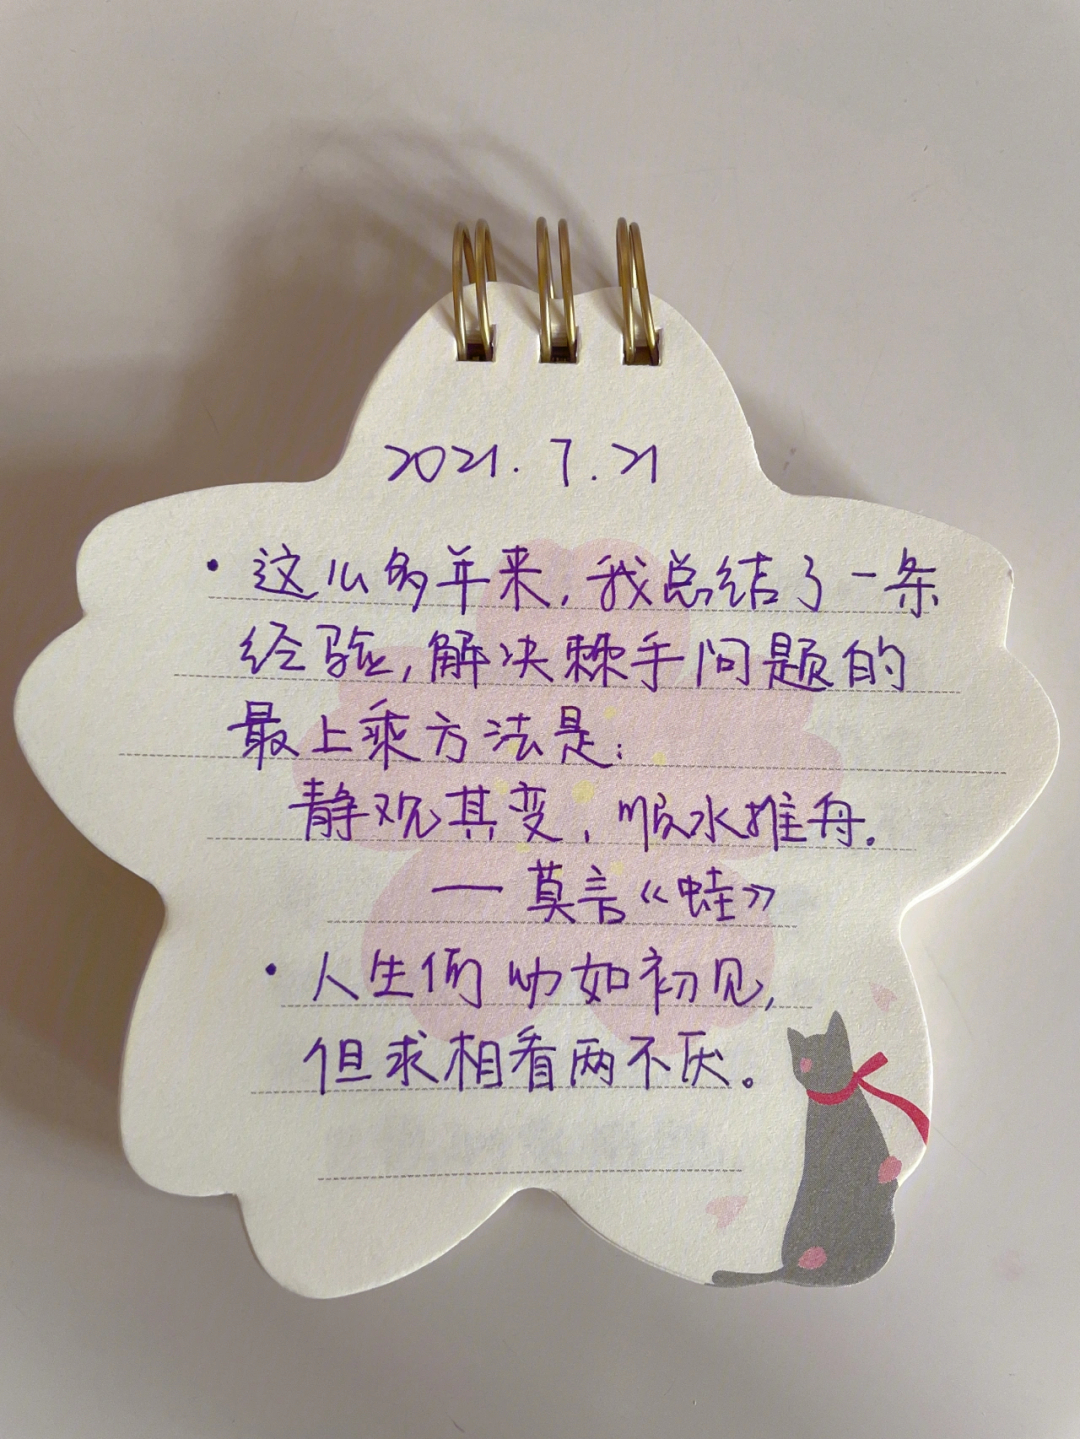 2021.7.21
• 这么多年来,我总结了一条
经验,解决棘手问题的
最上乘方法是:
静观其变,顺水推舟.
—莫言《蛙》
• 人生何必如初见,
但求相看两不厌。